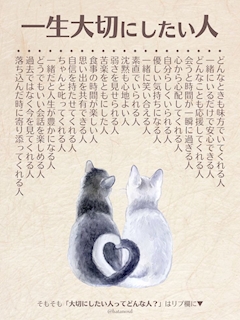 一生大切にしたい人
どんなときも味方でいてくれる人
一緒にいるだけで安心できる人
どんなことも応援してくれる人
会うと時間が一瞬に過ぎる人
心から心配してくれる人
自分らしくいられる人
優しい気持ちになる人
一緒に笑い合える人
素直でいられる人
沈黙も心地よい人
弱さを見せられる人
苦楽をともにした人
食事の時間が楽しい人
思い出を共有できる人
自信を持たせてくれる人
ちゃんと叱ってくれる人
一緒だと人生が豊かになる人
どうでもいい会話を楽しめる人
過去ではなく今を見てくれる人
落ち込んだ時に寄り添ってくれる人
そもそも「大切にしたい人ってどんな人？」はリプ欄に▼